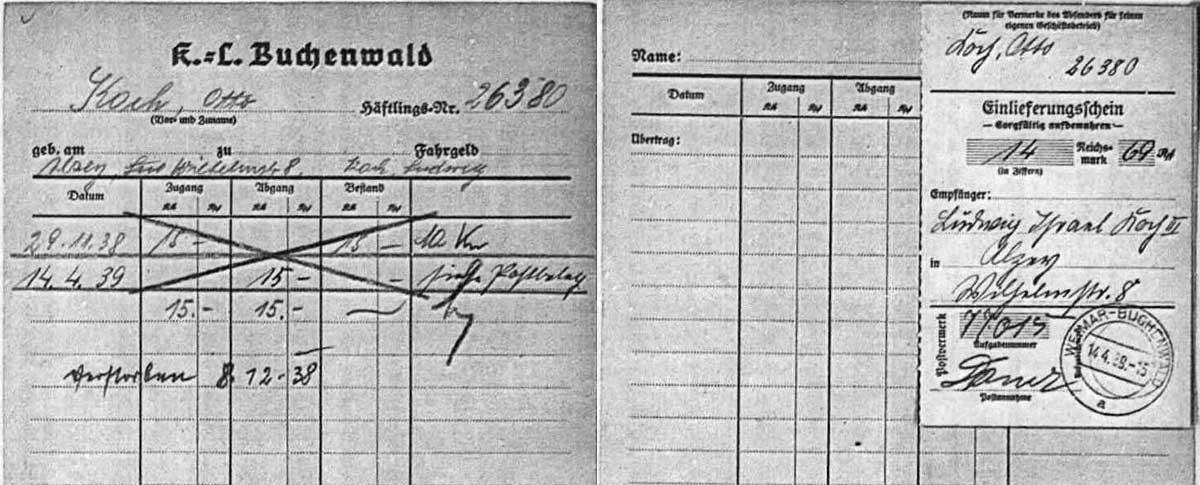 K.=L. Buchenwald
Koch, Otto
Häftlings-Nr. 26380
(Vor- und Zuname)
geb. am zu Fahrgeld
Alzey, Wilhelmstr 8, Koch, Ludwig
Datum Zugang Abgang Bestand
RM Rpf RM Rpf RM Rpf
29.11.38 15 - 15 -
14.4.39 15 - - siehe Postbeleg
15.- 15.- —
verstorben 8. 12. 38
Name:
Datum Zugang Abgang
RM Rpf RM Rpf
Übertrag:
(Raum für Vermerke des Absenders für seinen
eigenen Geschäftsbetrieb)
Koch, Otto
26380
Einlieferungsschein
— Sorgfältig aufbewahren —
14 Reichs-
mark 69 Rpf
(in Ziffern)
Empfänger:
Ludwig Israel Koch II
in Alzey
Wilhelmstr. 8
Postvermerk
015
Aufgabenummer
Postannahme
WEIMAR-BUCHENWALD
14.4.39.-15
a